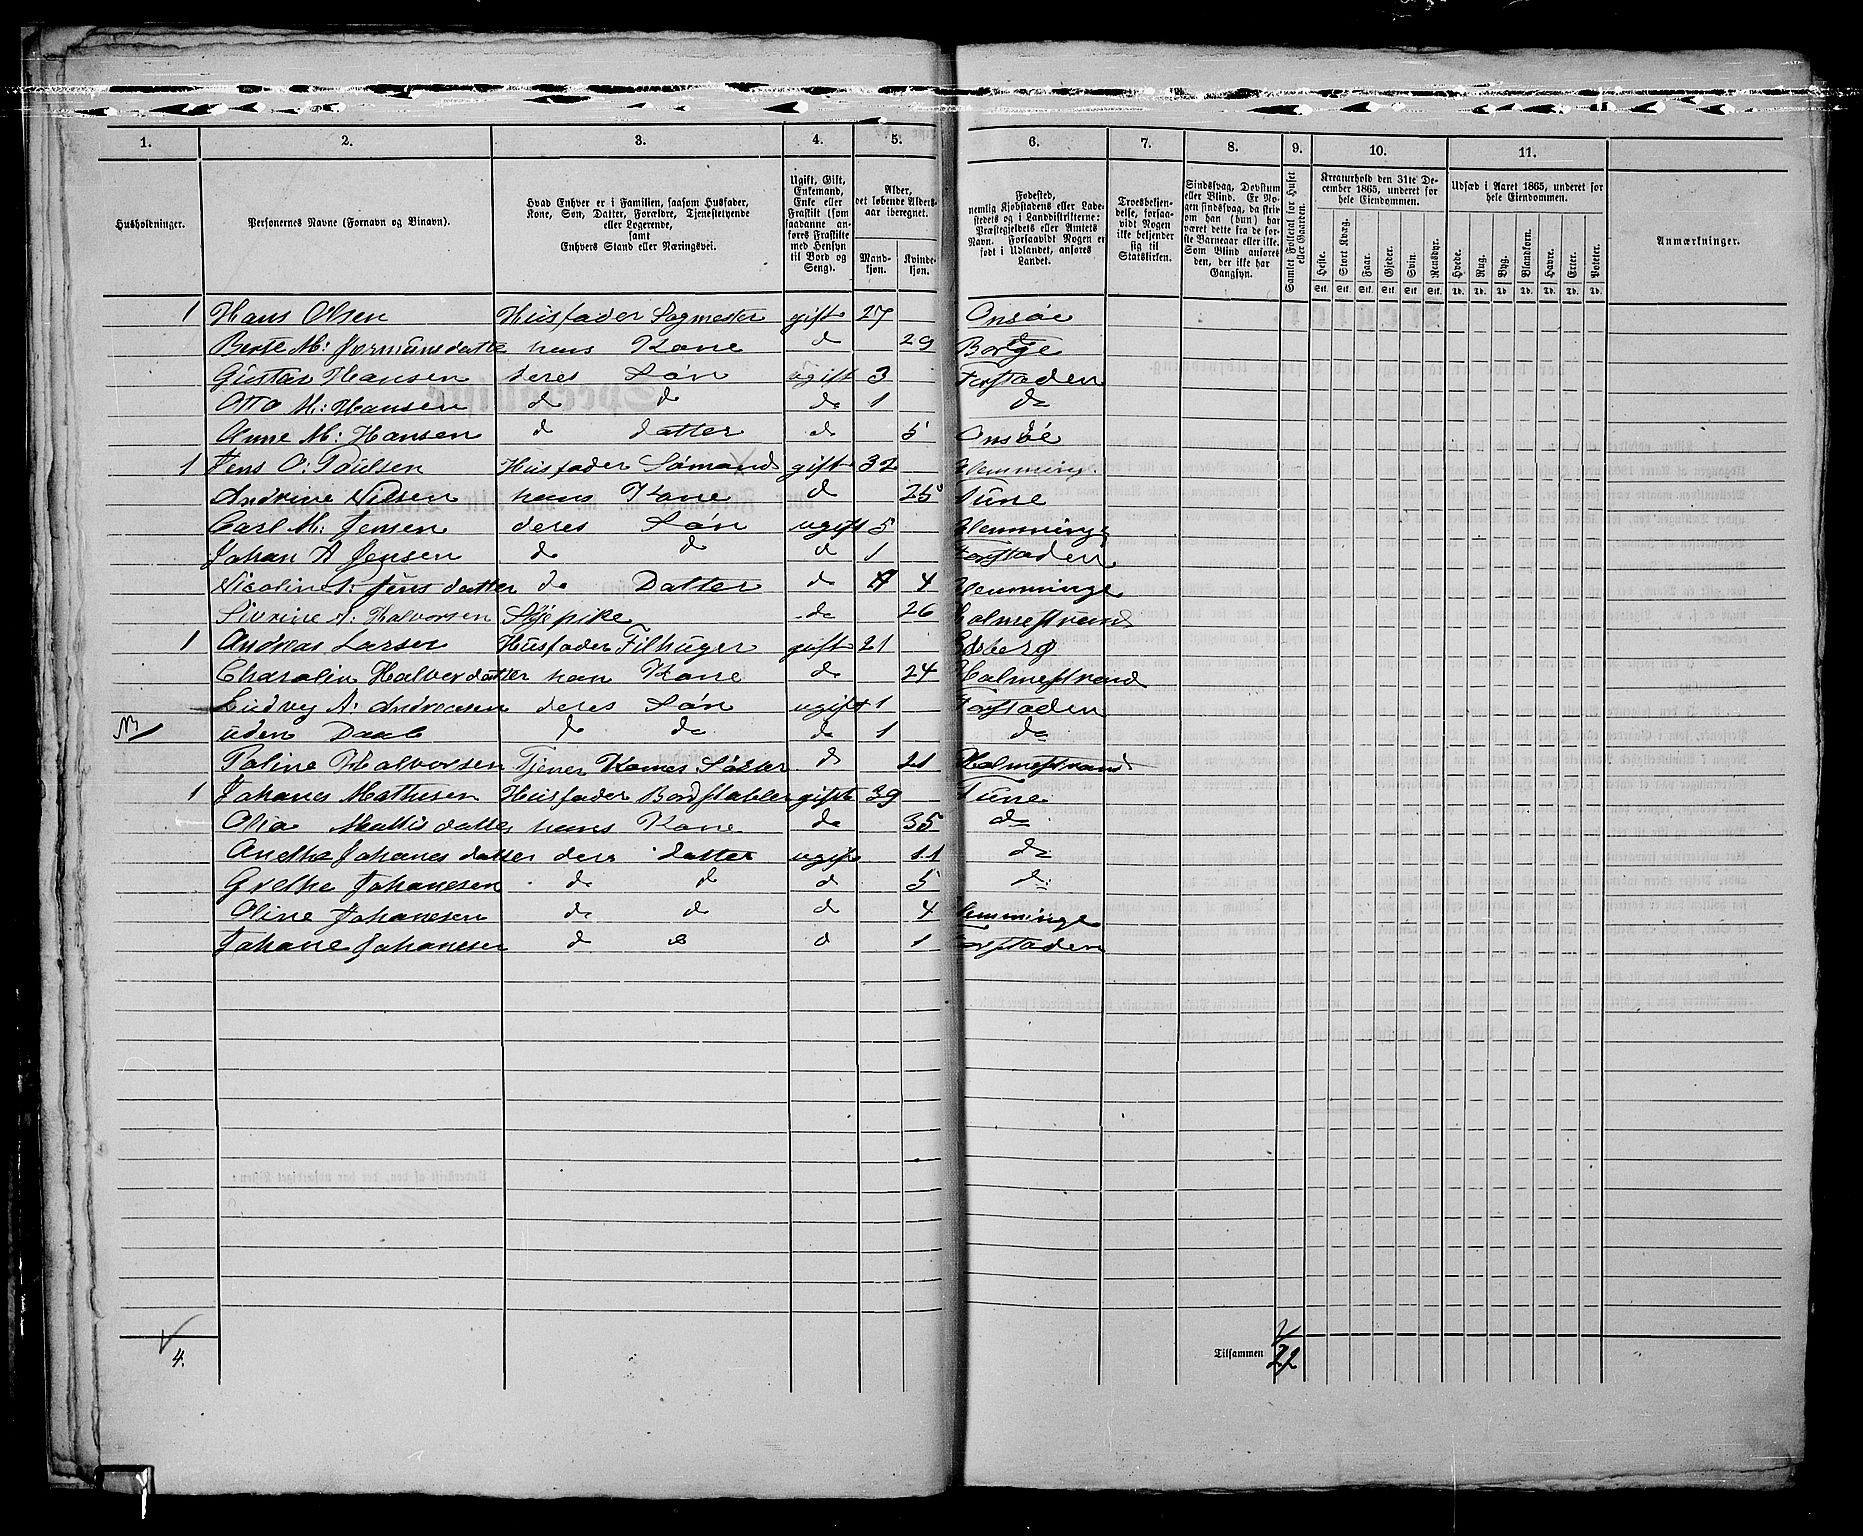 1. 2. 3. 4. 5. 6. 7. 8. 9. 10. 11.
Husholdninger.
Personernes Navne (Fornavn og Binavn).
Hvad Enhver er i Familien, saasom Husfader, Kone, Søn, Datter, Forældre, Tjenestetyende eller Logerende, samt Enhvers Stand eller Næringsvei.
Ugift, Gift, Enkemand, Enke eller Fraskilt (som saadanne anføres Fraskilte med Hensyn til Bord og Seng).
Alder, det løbende Alders-aar iberegnet.
Mand-kjøn. Kvinde-kjøn.
Fødested, nemlig Kjøbstadens eller Ladestedets og i Landdistrikterne: Præstegjeldets eller Amtets Navn. Forsaavidt Nogen er født i Udlandet, anføres Landet.
Troesbekjendelse, forsaavidt Nogen ikke bekjender sig til Statskirken.
Sindssvag, Døvstum eller Blind. Er Nogen sindssvag, da skrives om han (hun) har været dette fra de første Barneaar eller ikke. Som Blind anføres den, der ikke har Gangsyn.
Samlet Folketal for Huset eller Gaarden.
Kreaturhold den 31te December 1865, underet for hele Eiendommen.
Heste. Stort Kvæg. Faar. Gjeder. Svin. Rensdyr.
Stk. Stk. Stk. Stk. Stk. Stk.
Udsæd i Aaret 1865, underet for hele Eiendommen.
Hvede. Rug. Byg. Blandkorn. Havre. Erter. Poteter.
Td. Td. Td. Td. Td. Td. Td.
Anmærkninger.
1 Hans Olsen Husfader Sagmester gift 27 Onsøe
Berte M: hans Kone do 29 Borge
Gustav Hansen deres Søn ugift 3 Forstaden
Otto M: Hansen do do do 1 do
Anne M: Hansen do datter do 5 Onsøe
1 Jens O: Paulsen Husfader Sømand gift 32 Glemminge
Andrine Nilsen hans Kone do 25 Tune
Carl M: Jensen deres Søn ugift 5 Glemminge
Johan A Jensen do do do 1 Forstaden
Nicoline Jensdatter do Datter do 4 Glemminge
Sivrine A: Halvorsen Syepike do 26 Holmestrand
1 Andreas Larsen Husfader Filhuger gift 21 Edsberg
Charolin Halverdatter han Kone do 24 Holmestrand
Ludvig A: Andreasen deres Søn ugift 1 Forstaden
NB uden Daab do do do 1 do
Paline Halvorsen Tjener Kones Søster do 21 Holmestrand
1 Johanes Mathesen Husfader Bordstabler gift 39 Tune
Olia Mattisdatter hans Kone do 35 do
Anethe Johanesdatter deres datter ugift 11 do
Grethe Johanesen do do do 5 do
Oline Johanesen do do do 4 Glemminge
Johane Johanesen do do do 1 Forstaden
4. Tilsammen 22